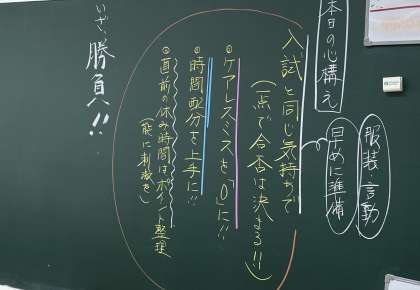 本日の心構え
服装・言動
早めに準備
入試と同じ気持ちで
(一点で合否は決まる!!)
①ケアレスミスを「0」に!!
②時間配分を上手に!!
③直前の休み時間はポイント整理
(脳に刺激を)
いざ、勝負!!